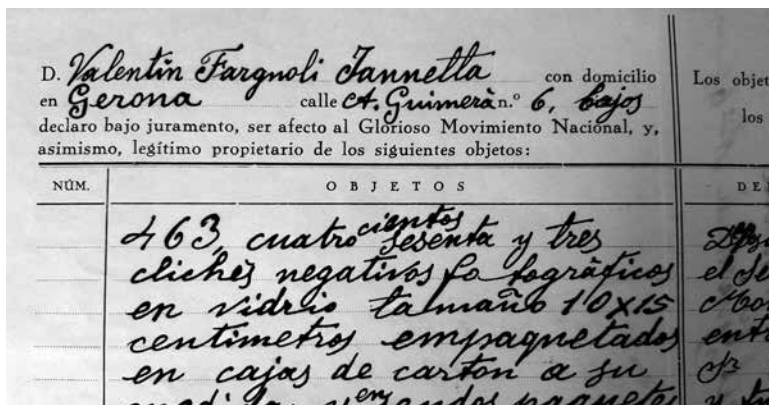 D. Valentín Fargnoli Iannetta con domicilio
en Gerona calle A. Guimerà n.º 6, bajos
declaro bajo juramento, ser afecto al Glorioso Movimiento Nacional, y,
asimismo, legítimo propietario de los siguientes objetos:
Los objet
los
NÚM. OBJETOS DE
463, cuatrocientos sesenta y tres
clichés negativos fotográficos el
en vidrio tamaño 10x15
centimetros empaquetados
en cajas de carton a su Sr
paquetes y